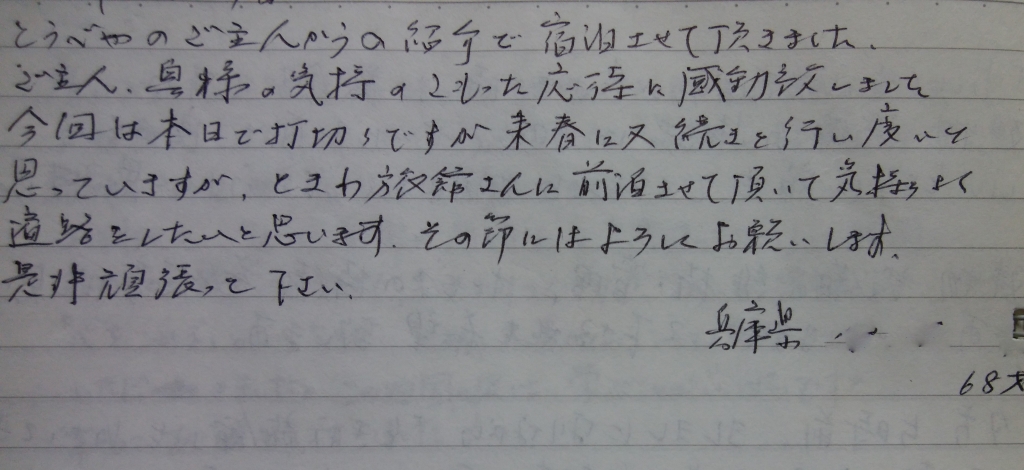 とうべやのご主人からの紹介で宿泊させて頂きました、
ご主人、奥様の気持のこもった応待に感動致しました
今回は本日で打切りですが来春に又続きを行い度いと
思っていますが、ときわ旅館さんに前泊させて頂いて気持よく
遍路をしたいと思います、その節にはよろしくお願いします、
是非頑張って下さい、
兵庫県
68才